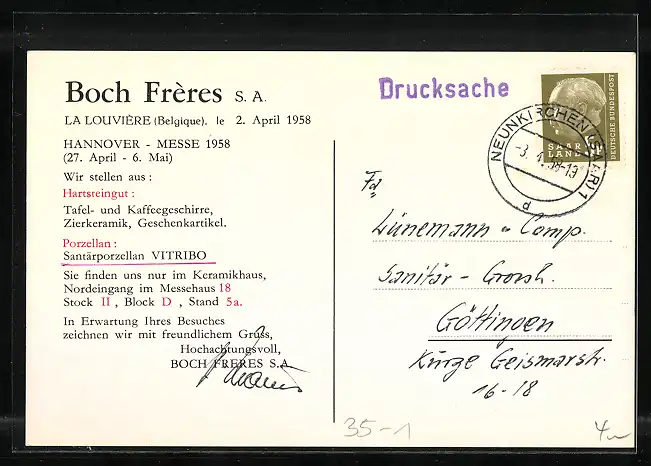 Boch Frères S. A.
LA LOUVIÈRE (Belgique). le 2. April 1958
HANNOVER - MESSE 1958
(27. April - 6. Mai)
Wir stellen aus :
Hartsteingut :
Tafel- und Kaffeegeschirre,
Zierkeramik, Geschenkartikel.
Porzellan :
Santärporzellan VITRIBO
Sie finden uns nur im Keramikhaus,
Nordeingang im Messehaus 18
Stock II , Block D , Stand 5a.
In Erwartung Ihres Besuches
zeichnen wir mit freundlichem Gruss,
Hochachtungsvoll,
BOCH FRERES S.A.
Drucksache
DEUTSCHE BUNDESPOST
SAAR
LAND
NEUNKIRCHEN (SAAR) 1
d
Fa
Lünemann & Comp.
Sanitär - Grossh.
Göttingen
Kurze Geismarstr.
16-18
35-1